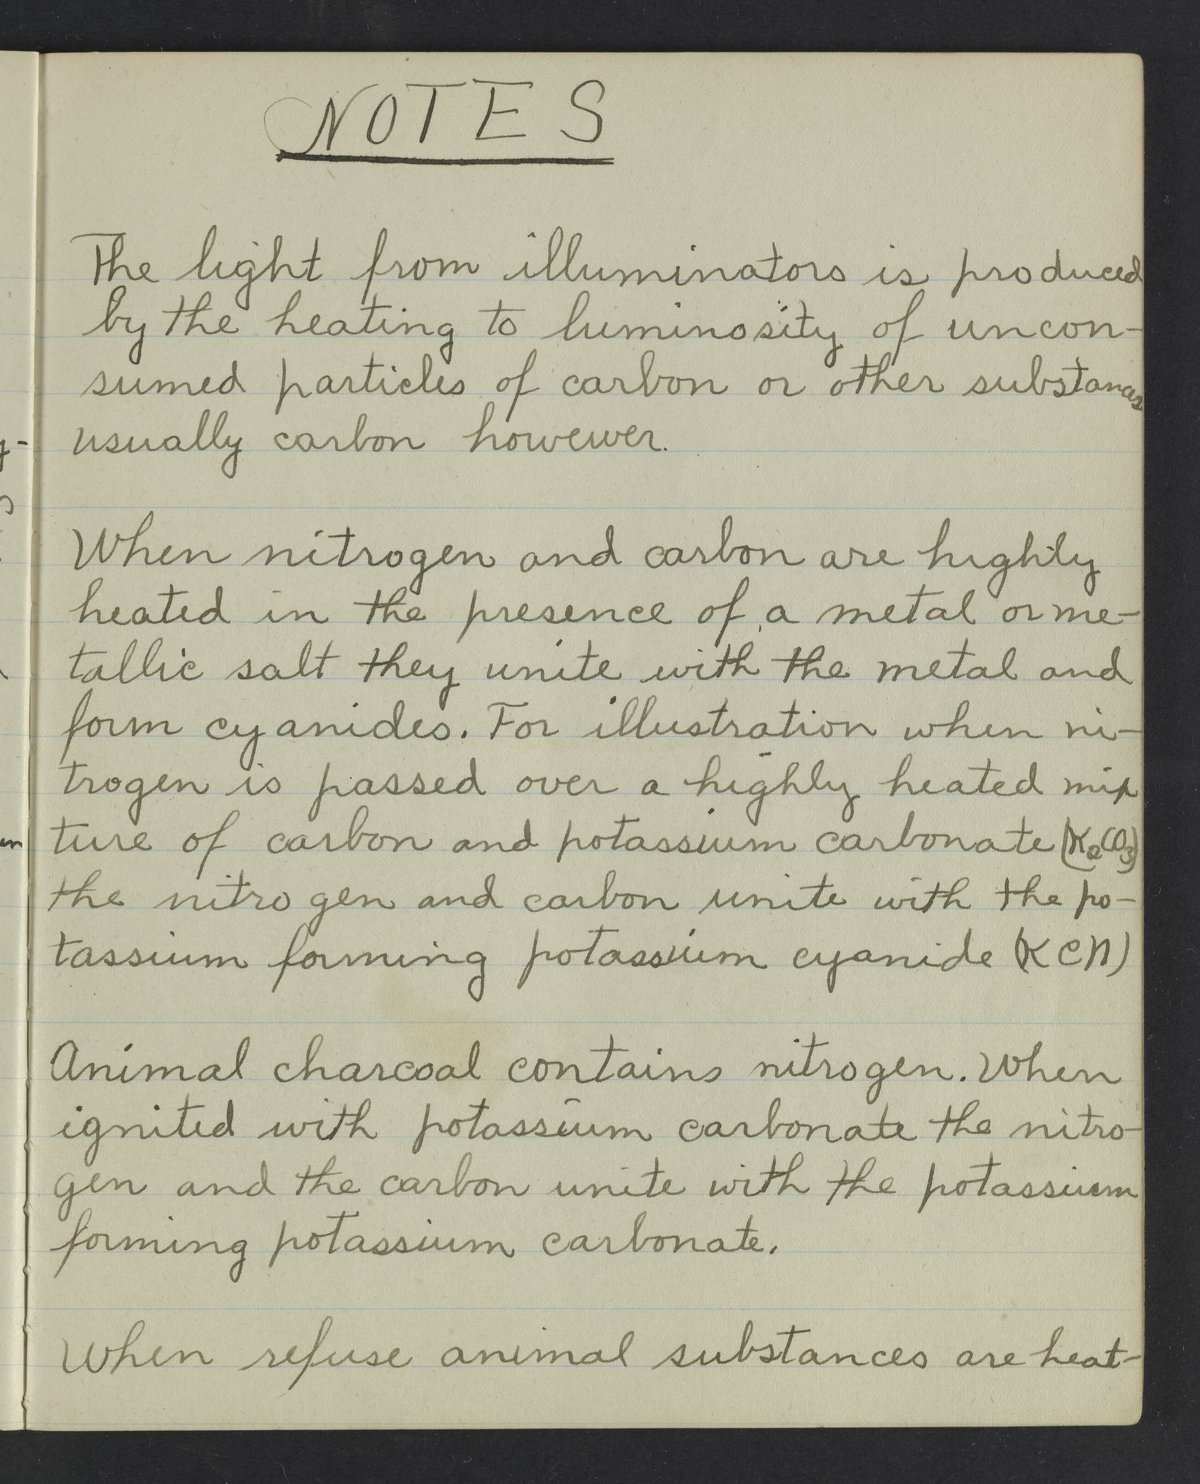 NOTES
The light from illuminators is produced
by the heating to luminosity of uncon-
sumed particles of carbon or other substances
usually carbon however.
When nitrogen and carbon are highly
heated in the presence of a metal or me-
tallic salt they unite with the metal and
form cyanides. For illustration when ni-
trogen is passed over a highly heated mix
ture of carbon and potassium carbonate (K2CO3)
the nitrogen and carbon unite with the po-
tassium forming potassium cyanide (KCN)
Animal charcoal contains nitrogen. When
ignited with potassium carbonate the nitro-
gen and the carbon unite with the potassium
forming potassium carbonate.
When refuse animal substances are heat-